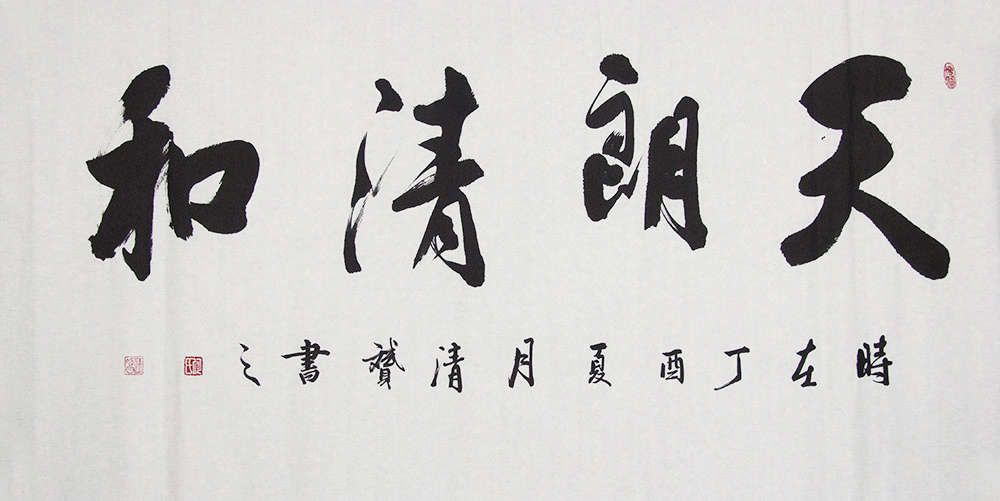 天朗清和
時在丁酉夏月清贇書之